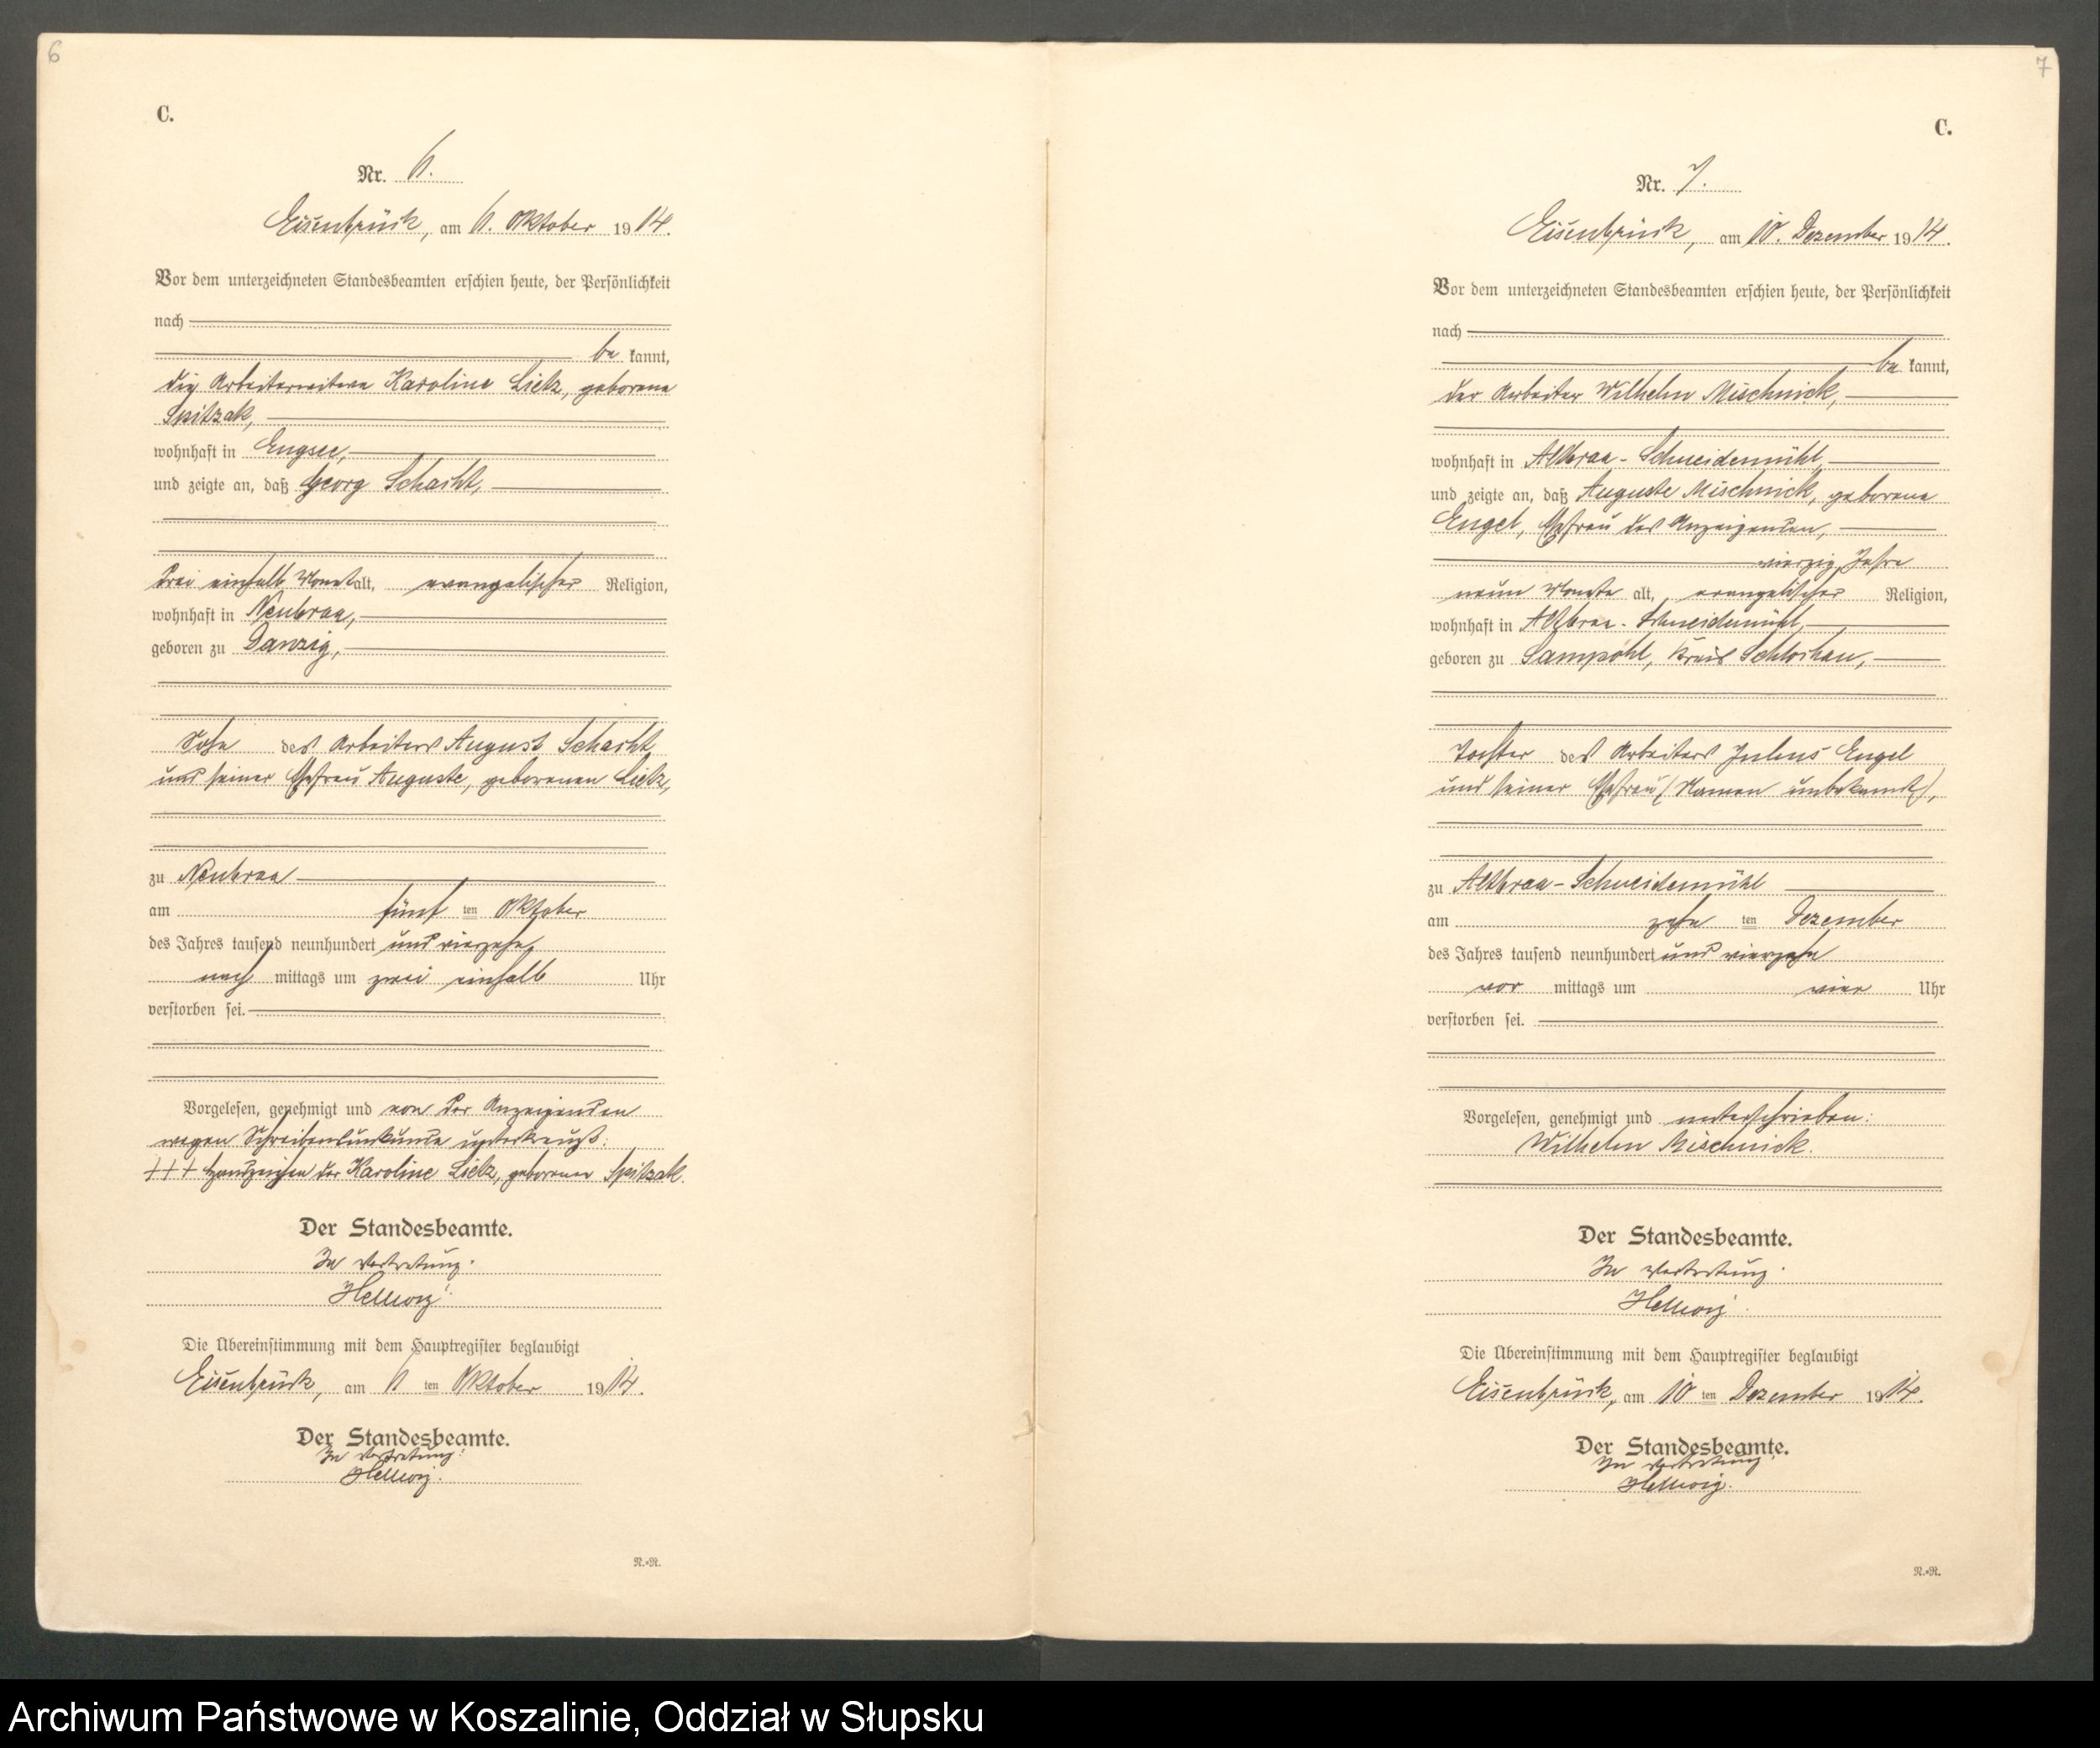 6
C.
Nr. 6.
Eisenbrück, am 6. Oktober 1914.
Vor dem unterzeichneten Standesbeamten erschien heute, der Persönlichkeit
nach
be kannt,
die Arbeiterwitwe Karoline Lietz, geborene
Spitzak,
wohnhaft in Engsee,
und zeigte an, daß Georg Schacht,
drei einhalb Monat alt, evangelischer Religion,
wohnhaft in Neubraa,
geboren zu Danzig,
Sohn des Arbeiters August Schacht
und seiner Ehefrau Auguste, geborenen Lietz,
zu Neubraa
am fünf ten Oktober
des Jahres tausend neunhundert und vierzehn
nach mittags um zwei einhalb Uhr
verstorben sei.
Vorgelesen, genehmigt und von der Anzeigenden
wegen Schreibensunkunde unterkreuzt:
+++ Handzeichen der Karoline Lietz, geborener Spitzak.
Der Standesbeamte.
In Vertretung:
Hellwig.
Die Übereinstimmung mit dem Hauptregister beglaubigt
Eisenbrück, am 6 ten Oktober 1914.
Der Standesbeamte.
In Vertretung:
Hellwig.
R.=R.
7
C.
Nr. 7.
Eisenbrück, am 10. Dezember 1914.
Vor dem unterzeichneten Standesbeamten erschien heute, der Persönlichkeit
nach
be kannt,
der Arbeiter Wilhelm Mischnick,
wohnhaft in Altbraa-Schneidemühl,
und zeigte an, daß Auguste Mischnick, geborene
Engel, Ehefrau des Anzeigenden,
vierzig Jahre
neun Monate alt, evangelischer Religion,
wohnhaft in Altbraa-Schneidemühl,
geboren zu Sampohl, Kreis Schlochau,
Tochter des Arbeiters Julius Engel
und seiner Ehefrau (Namen unbekannt),
zu Altbraa-Schneidemühl
am zehn ten Dezember
des Jahres tausend neunhundert und vierzehn
vor mittags um vier Uhr
verstorben sei.
Vorgelesen, genehmigt und unterschrieben:
Wilhelm Mischnick.
Der Standesbeamte.
In Vertretung:
Hellwig.
Die Übereinstimmung mit dem Hauptregister beglaubigt
Eisenbrück, am 10 ten Dezember 1914.
Der Standesbeamte.
In Vertretung:
Hellwig.
R.=R.
Archiwum Państwowe w Koszalinie, Oddział w Słupsku